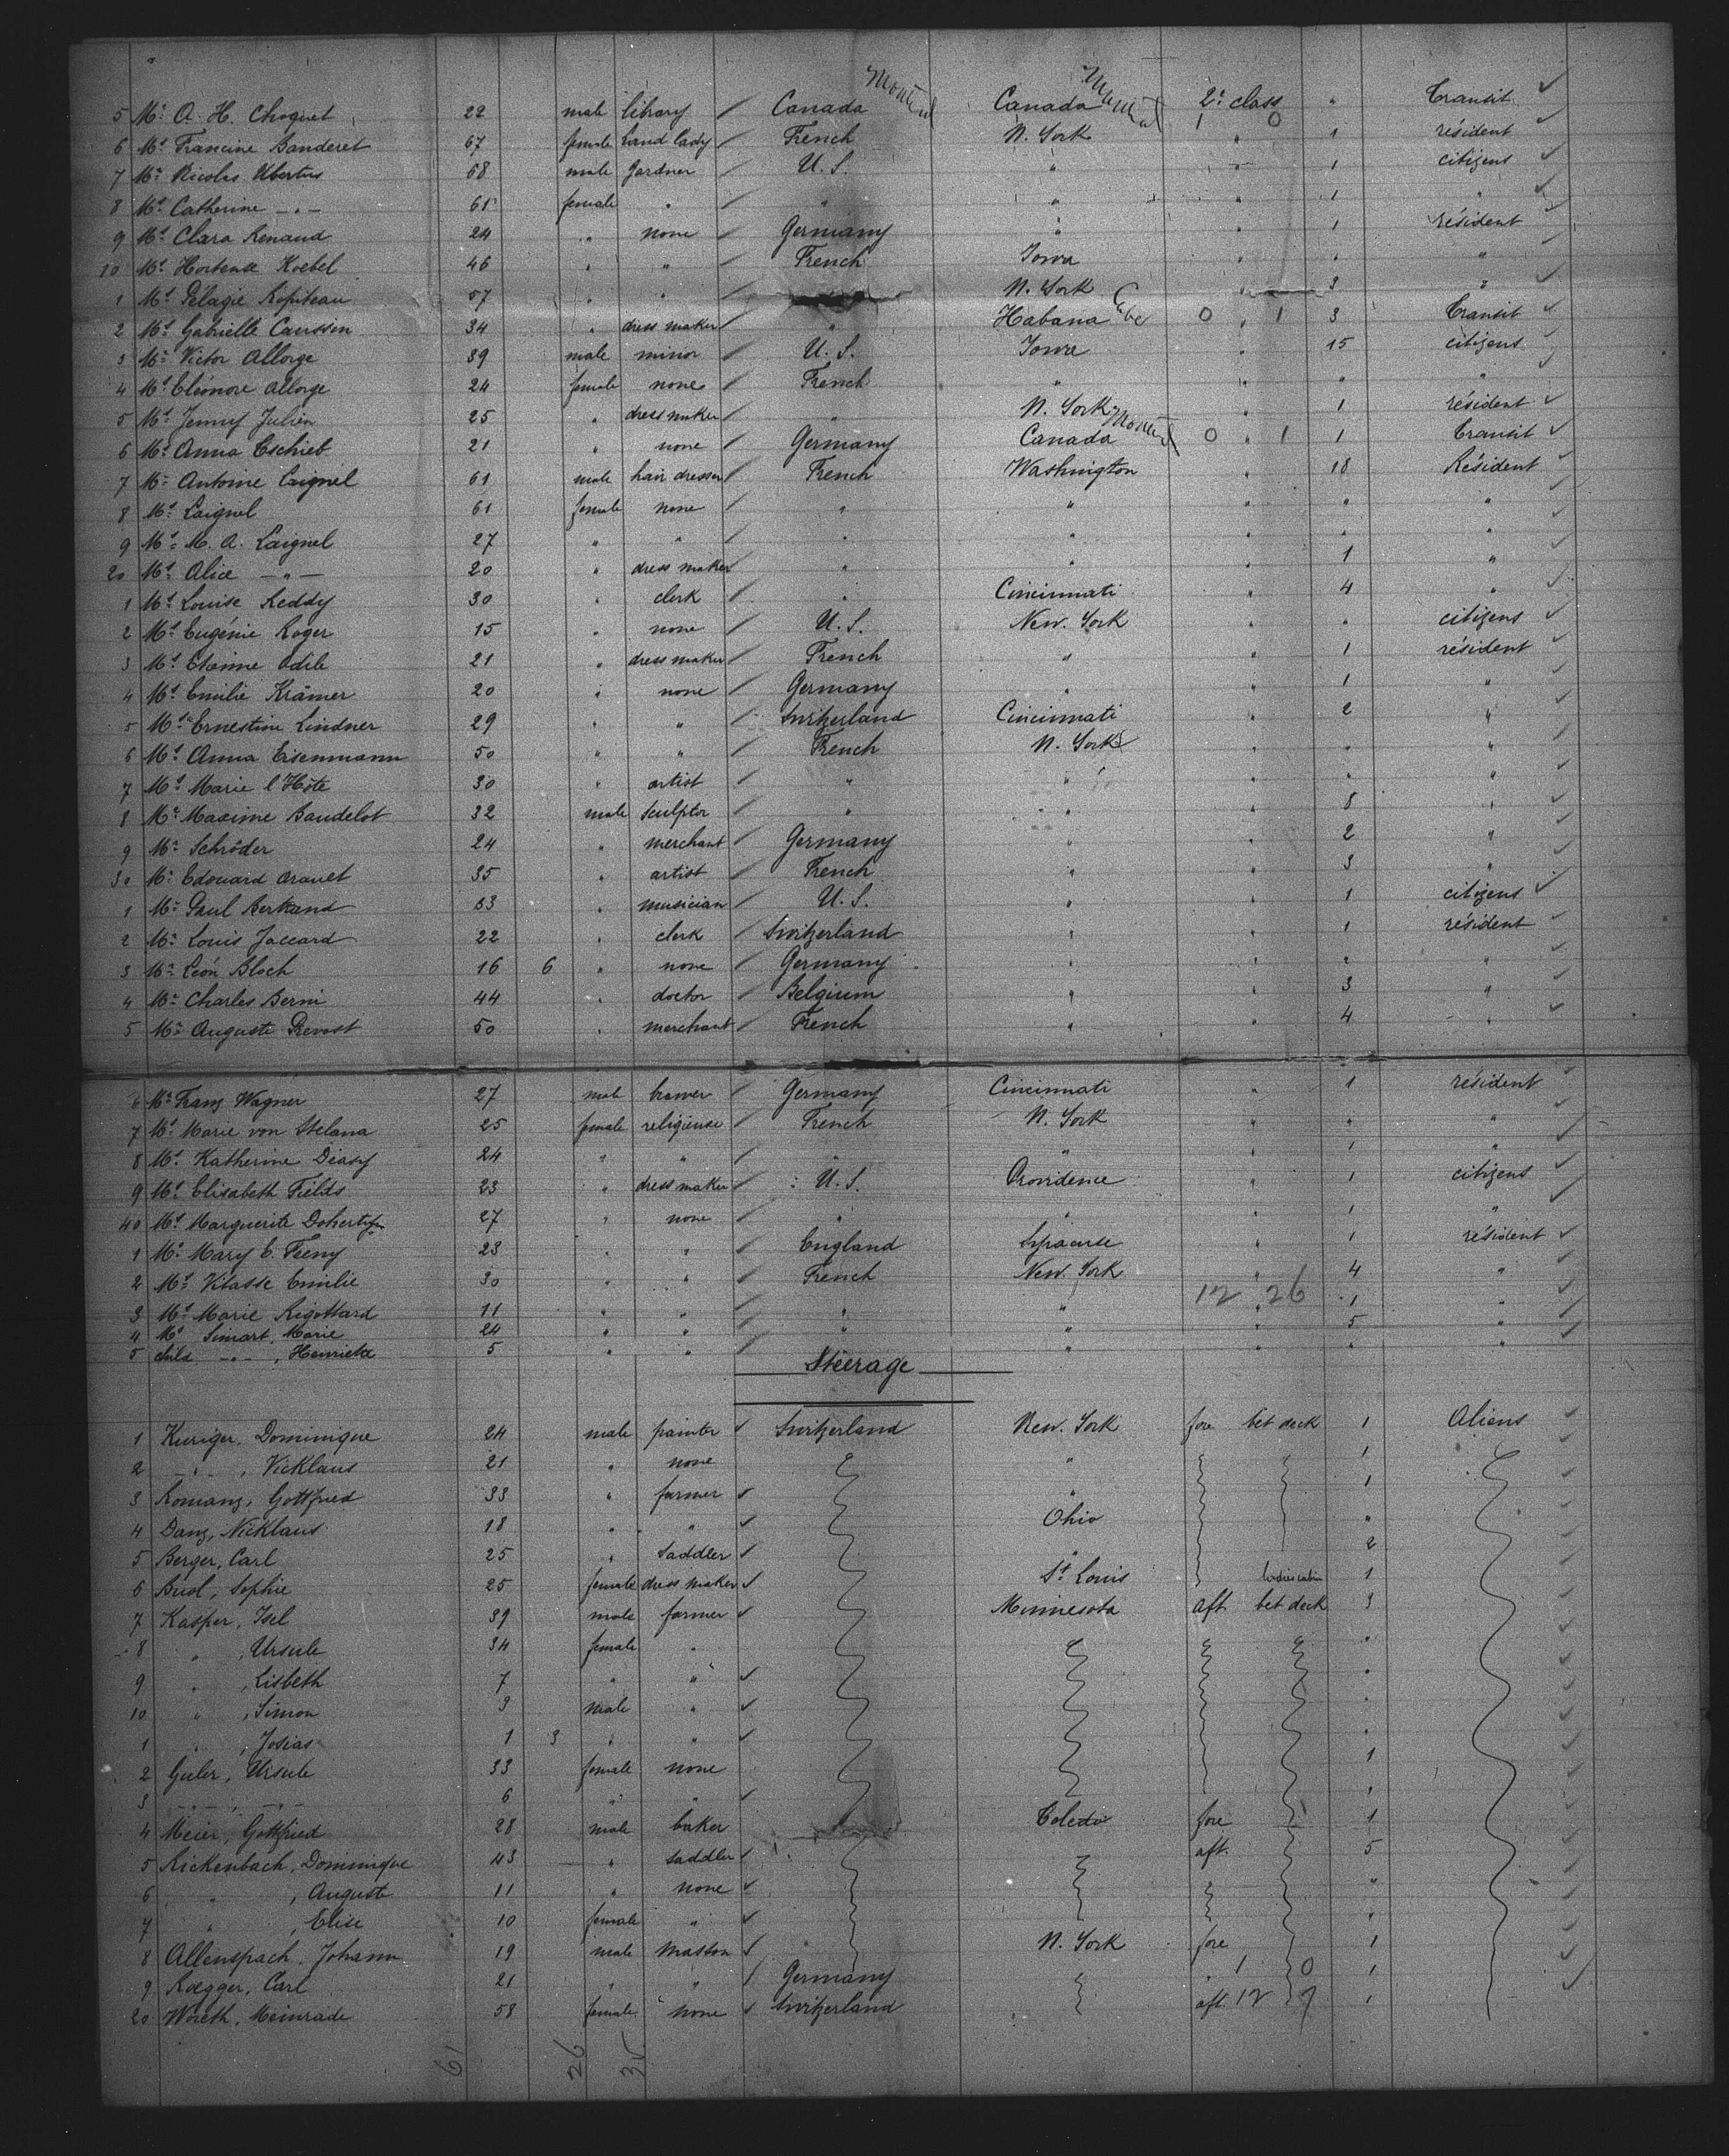 5 Mr A. H. Choquet 22 male library / Canada Montreal Canada Montreal 2e class " Transit
1 0
6 Me Francine Banderet 67 female Land lady / French N. York " 1 résident
7 Mr Nicolas Ubertus 68 male Gardner / U. S. " " 1 citizens
8 Me Catherine — " — 61 female " / " " " 1 "
9 Me Clara Renaud 24 " none / Germany " " 1 résident
10 Me Hortense Koebel 46 " " / French Iowa " 1 "
1 Me Pélagie Ropiteau 57 " " N. York " 3 "
2 Me Gabrielle Caussin 34 " dress maker / " Habana Cuba 0 " 1 3 Transit
3 Mr Victor Allorge 39 male minor / U. S. Iowa " 15 citizens
4 Me Eléonore Allorge 24 female none / French " " " "
5 Me Jenny Julien 25 " dress maker / " N. York " 1 résident
6 Me Anna Tschieb 21 " none / Germany Canada Montreal 0 " 1 1 Transit
7 Mr Antoine Laignel 61 male hair dresser / French Washington " 18 Résident
8 Me Laignel 61 female none / " " " " "
9 Me M. A. Laignel 27 " " / " " " " "
20 Me Alice — " — 20 " dress maker " " " 1 "
1 Me Louise Reddy 30 " clerk / " Cincinnati " 4 "
2 Me Eugénie Roger 15 " none / U. S. New. York " " citizens
3 Me Etienne Odile 21 " dress maker / French " " 1 résident
4 Me Emilie Krämer 20 " none / Germany " " 1 "
5 Me Ernestine Lindner 29 " " / Switzerland Cincinnati " 2 "
6 Me Anna Eisenmann 50 " " / French N. York " " "
7 Me Marie l'Hôte 30 " artist / " " " " "
8 Mr Maxime Baudelot 32 male sculptor / " " " 8 "
9 Mr Schröder 24 " merchant / Germany " " 2 "
30 Mr Edouard Drouet 35 " artist / French " " 3 "
1 Mr Paul Bertrand 33 " musician / U. S. " " 1 citizens
2 Mr Louis Jaccard 22 " clerk / Switzerland " " 1 résident
3 Mr Léon Bloch 16 6 " none / Germany " " " "
4 Mr Charles Berni 44 " doctor / Belgium " " 3 "
5 Mr Auguste Prevost 50 " merchant / French " " 4 "
6 Mr Franz Wagner 27 male brawer / Germany Cincinnati " 1 résident
7 Me Marie von Stelana 25 female religieuse / French N. York " " "
8 Me Katherine Deasy 24 " " / " " " 1 "
9 Me Elisabeth Fields 23 " dress maker / U. S. Providence " 1 citizens
40 Me Marguerite Doherty 27 " none / " " " 1 "
1 Me Mary E. Feeny 23 " " / England Syracuse " 1 résident
2 Me Vitasse Emilie 30 " " / French New. York " 4 "
12 26
3 Me Marie Rigottard 11 " " / " " " 1 "
4 Me Simart, Marie 24 " " / " " " 5 "
5 child — " — , Henriette 5 " " / " " " " "
Steerage
1 Kuriger, Dominique 24 male painter Switzerland New. York fore bet deck 1 Aliens
2 — " — , Nicklaus 21 " none " 1
3 Romang, Gottfried 33 " farmer " 1
4 Danz, Nicklaus 18 " " Ohio "
5 Berger, Carl 25 " saddler " 2
6 Busl, Sophie 25 female dress maker St Louis ladies cabin 1
7 Kasper, Isel 39 male farmer Minnesota aft bet deck 3
8 " , Ursule 34 female " "
9 " , Lisbeth 7 " " "
10 " , Simon 9 male " "
1 " , Josias 1 3 " " "
2 Guler, Ursule 33 female none 1
3 — " — , — " — 6 " " "
4 Meier, Gottfried 28 male baker Toledo fore 1
5 Rickenbach, Dominique 43 " saddler aft. 5
6 " , Auguste 11 " none "
7 " , Elise 10 female " "
8 Allenspach, Johann 19 male masson N. York fore 1
9 Roegger, Carl 21 " " / Germany " 1 0 1
20 Woreth, Meinrade 58 female none Switzerland aft 12 9 1
61 26 35